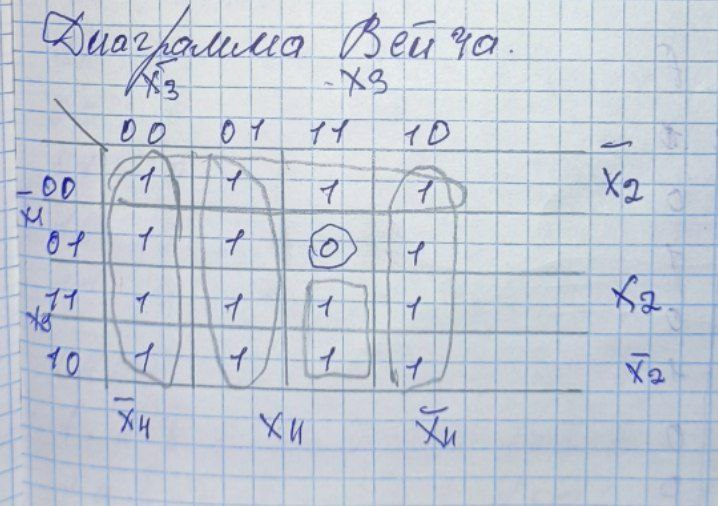 Диаграмма Вейча.
x̄3 x3
00 01 11 10
00 1 1 1 1 x̄2
x̄1
01 1 1 0 1
11 1 1 1 1 x2
10 1 1 1 1 x̄2
x̄4 x4 x̄4